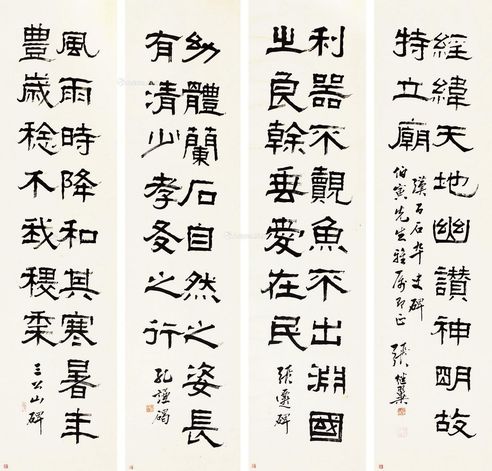 經緯天地幽讚神明故
特立廟
漢百石卒史碑
伯寅先生雅屬即正
張祖翼
利器不覿魚不出淵國
之良幹垂愛在民
張遷碑
幼體蘭石自然之姿長
有清少孝友之行
孔謙碣
風雨時降和其寒暑年
豊歲稔不我稷黍
三公山碑